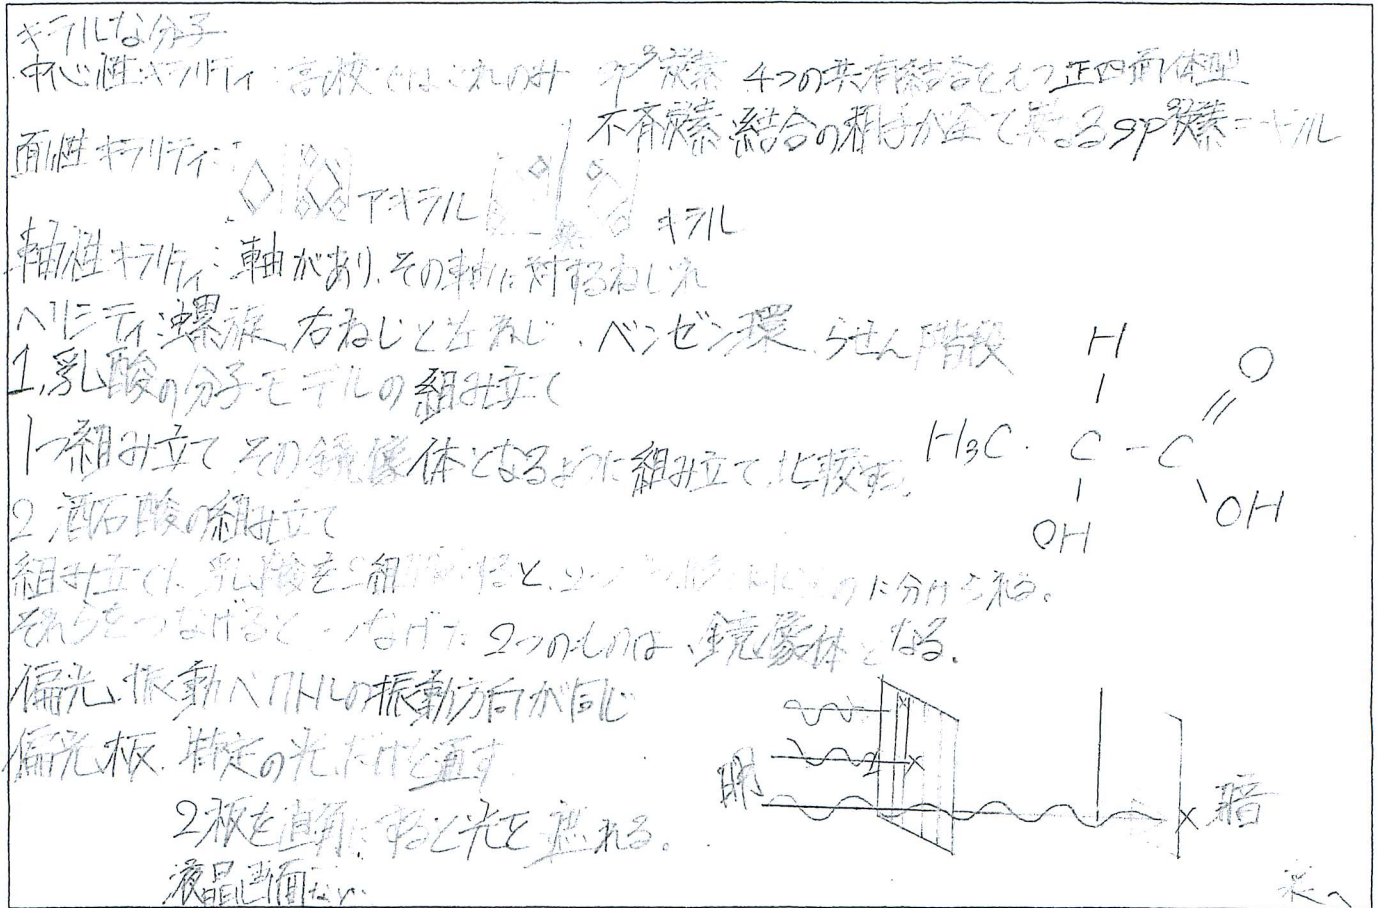 キラルな分子
中心性キラリティ:高校ではこれのみ sp³炭素 4つの共有結合をもつ正四面体型
不斉炭素 結合の相手が全て異なるsp³炭素=キラル
面性キラリティ:
アキラル キラル
軸性キラリティ:軸があり、その軸に対するねじれ
ヘリシティ:螺旋、右ねじと左ねじ、ベンゼン環、らせん階段
1,乳酸の分子モデルの組み立て
1つ組み立て、その鏡像体となるように組み立て、比較する。
H
O
H3C C - C
OH
OH
2 酒石酸の組み立て
組み立てた乳酸を2組 すると、 に分けられる。
それらをつなげると、つなげた2つのものは、鏡像体となる。
偏光、振動ベクトルの振動方向が同じ
偏光板、特定の光だけを通す
2板を直角にすると光を遮れる。
液晶画面など
明 暗
裏へ